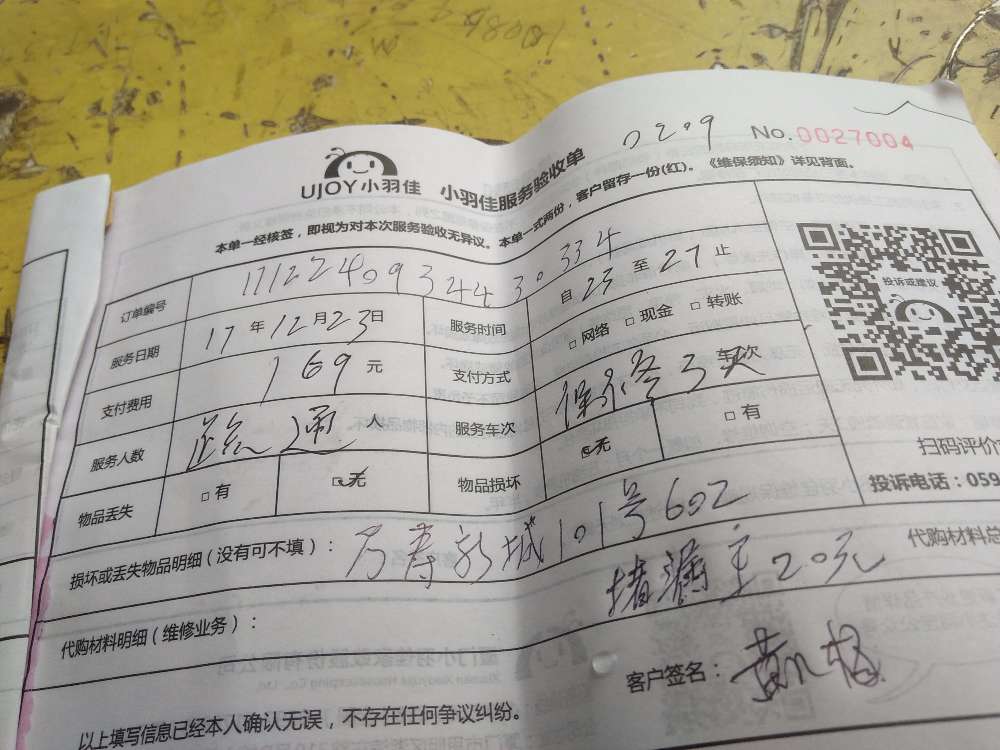 0209
No.0027004
UJOY小羽佳 小羽佳服务验收单
本单一经核签，即视为对本次服务验收无异议。本单一式两份，客户留存一份(红)。《维保须知》详见背面。
订单编号 1712240934430334
服务日期 17年12月23日 服务时间 自25至27止
支付费用 169元 支付方式 □网络 □现金 □转账
服务人数 疏通 人 服务车次 保修3天 车次
物品丢失 □有 □无 物品损坏 □无 □有
损坏或丢失物品明细（没有可不填）： 万寿新城101号602
代购材料明细（维修业务）： 堵漏 20元 代购材料总
以上填写信息已经本人确认无误，不存在任何争议纠纷。 客户签名：
投诉或建议
扫码评价
投诉电话：059